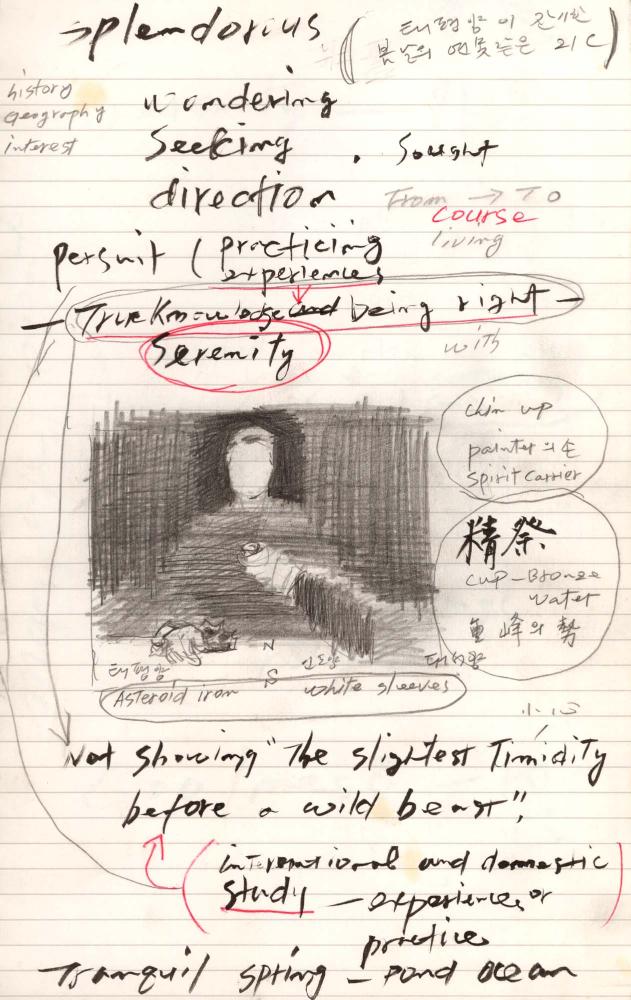 splendorius (태평양이 잔잔한
봄날의 연못 같은 21C)
history
Geography
interest
wondering
Seeking . Sought
direction From → To
course
living
persuit (practicing
experiences
— True Knowledge and being right —
with
Serenity
chin up
painter의 손
spirit carrier
精祭
cup – Bronze
water
重峰의 勢
N
태평양 인도양 대서양
S
Asteroid iron white sleeves
小心
Not showing "The slightest Timidity
before a wild beast",
(international and domnestic)
study — experiences or
practice
Tranquil spring – pond ocean